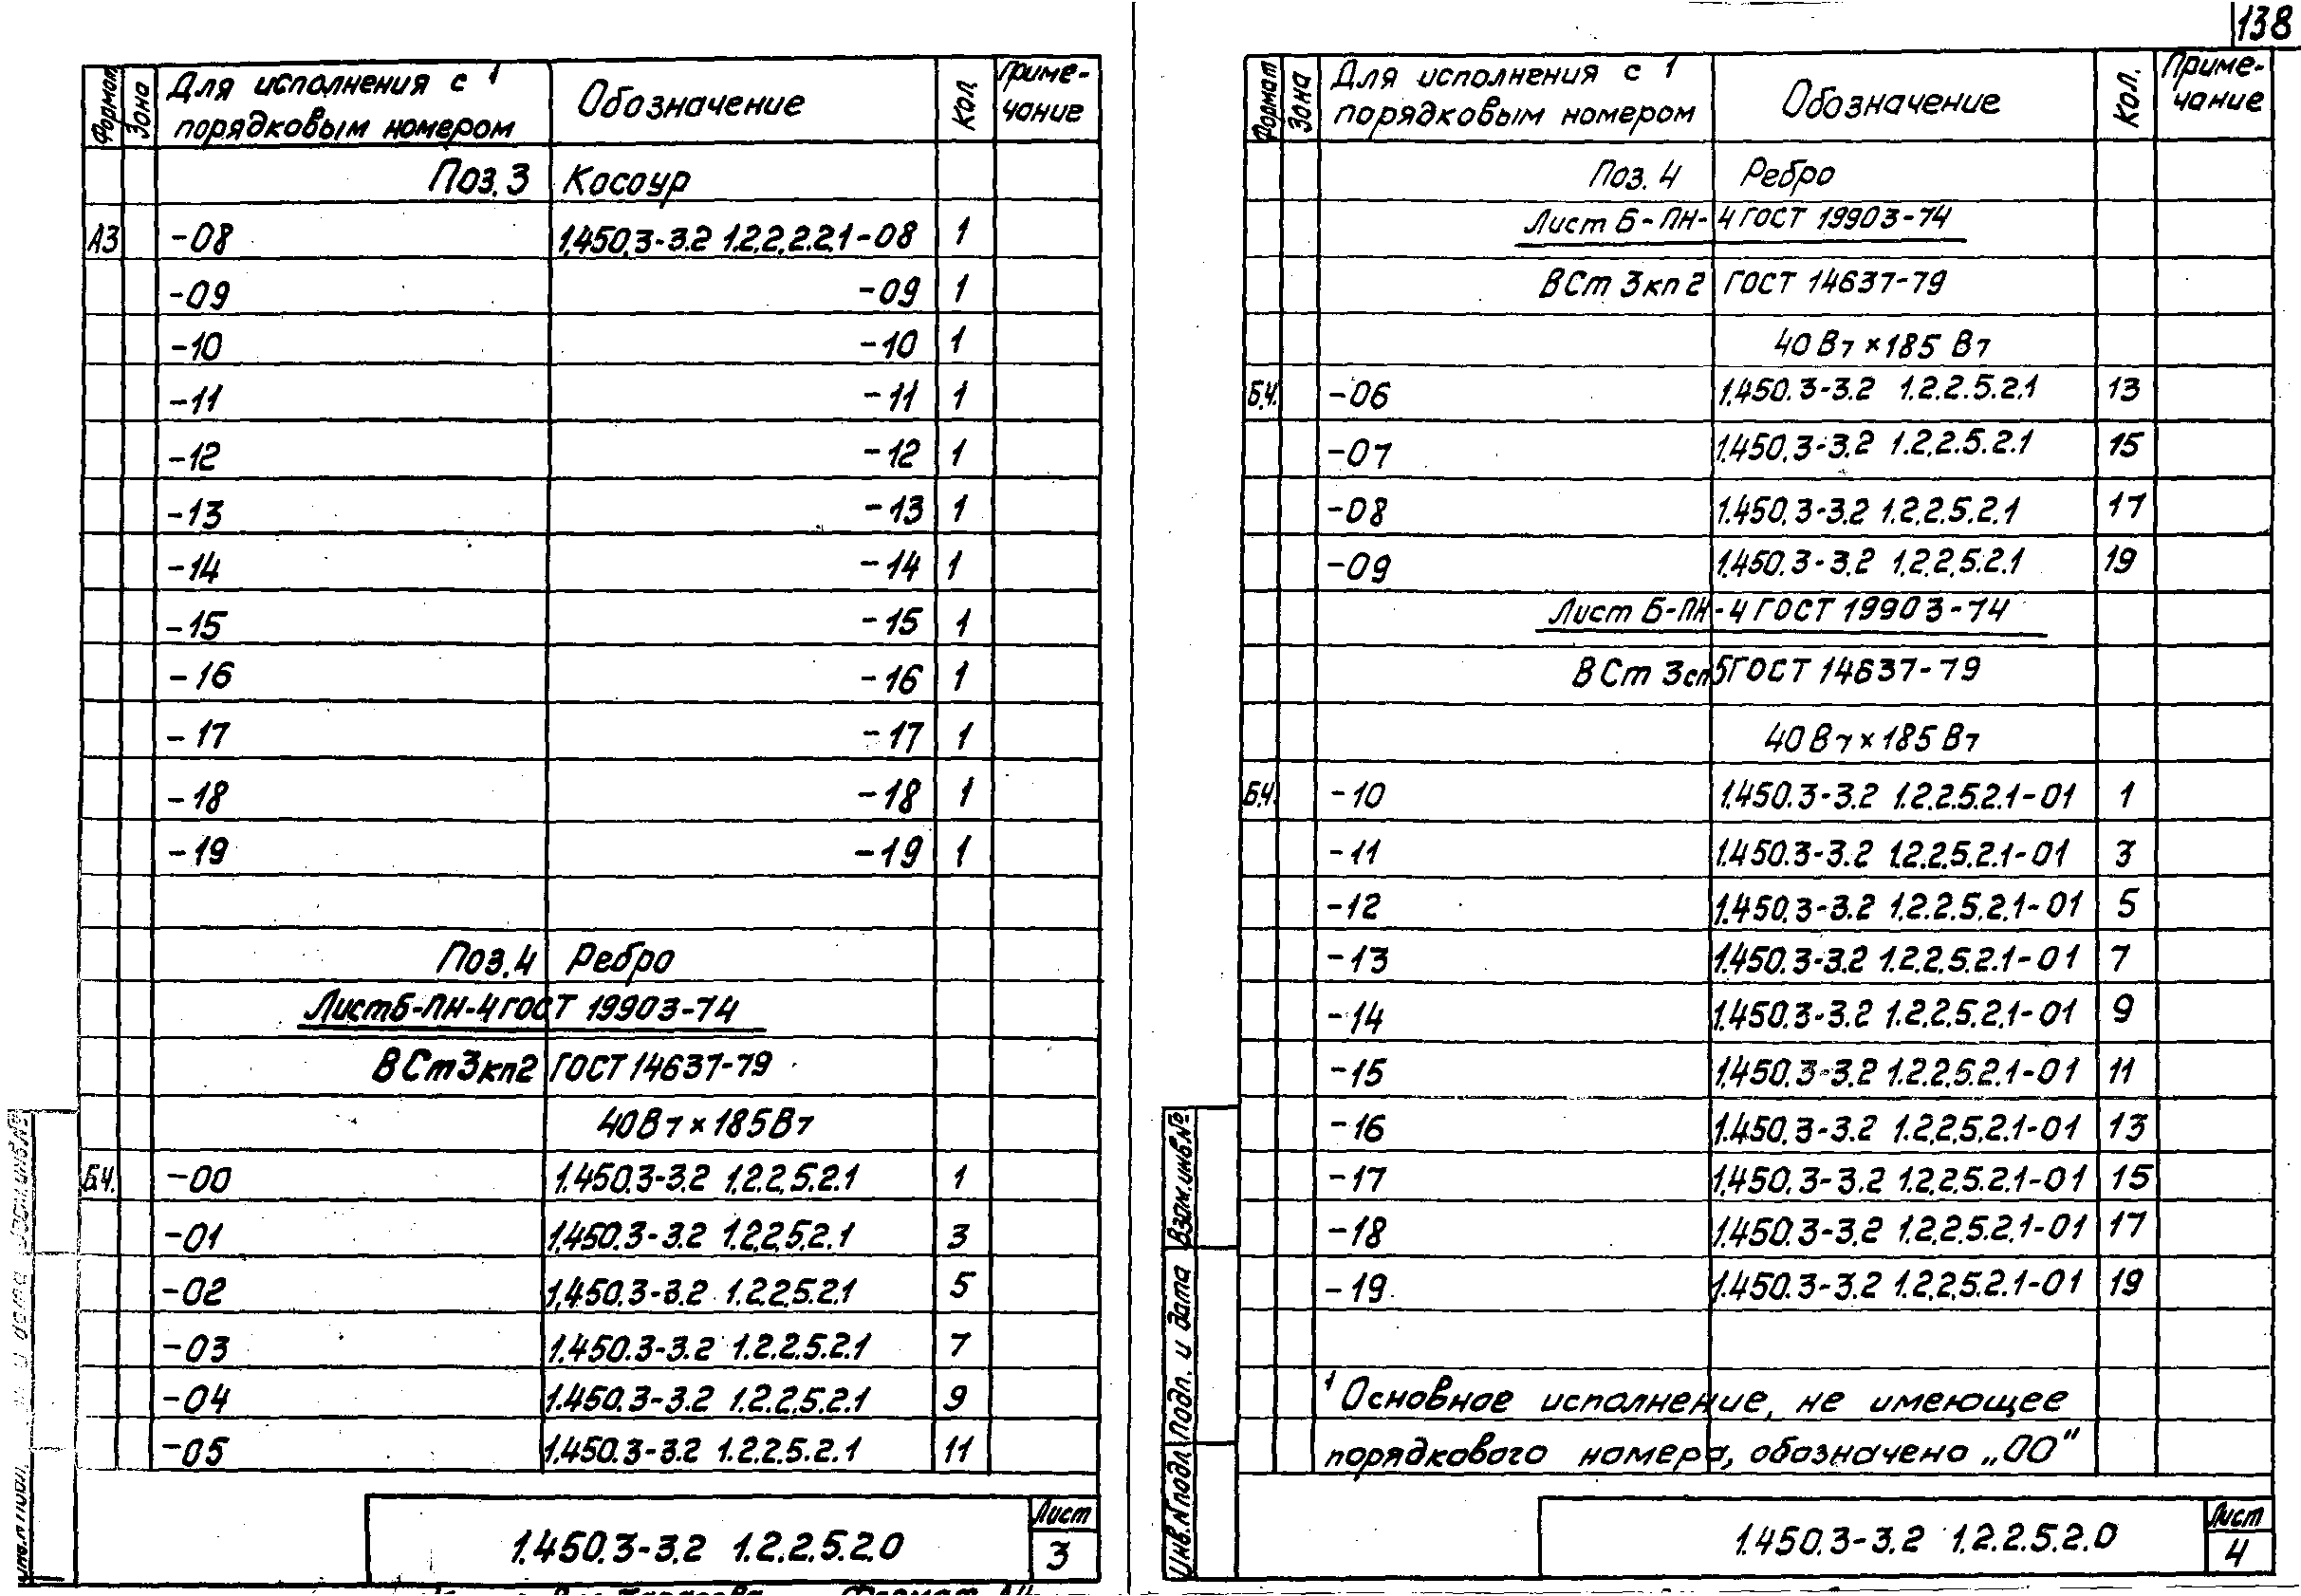 138
Формат Зона Для исполнения с 1 порядковым номером Обозначение Кол. Приме-чание
Поз. 3 Косоур
А3 -08 1.450.3-3.2 1.2.2.2.2.1-08 1
-09 -09 1
-10 -10 1
-11 -11 1
-12 -12 1
-13 -13 1
-14 -14 1
-15 -15 1
-16 -16 1
-17 -17 1
-18 -18 1
-19 -19 1
Поз. 4 Ребро
Лист Б-ПН-4 ГОСТ 19903-74
ВСт3кп2 ГОСТ 14637-79
40Вт×185Вт
Б.Ч. -00 1.450.3-3.2 1.2.2.5.2.1 1
-01 1.450.3-3.2 1.2.2.5.2.1 3
-02 1.450.3-3.2 1.2.2.5.2.1 5
-03 1.450.3-3.2 1.2.2.5.2.1 7
-04 1.450.3-3.2 1.2.2.5.2.1 9
-05 1.450.3-3.2 1.2.2.5.2.1 11
1.450.3-3.2 1.2.2.5.2.0
Лист
3
Формат Зона Для исполнения с 1 порядковым номером Обозначение Кол. Приме-чание
Поз. 4 Ребро
Лист Б-ПН-4 ГОСТ 19903-74
ВСт 3кп2 ГОСТ 14637-79
40Вт×185 Вт
Б.Ч. -06 1.450.3-3.2 1.2.2.5.2.1 13
-07 1.450.3-3.2 1.2.2.5.2.1 15
-08 1.450.3-3.2 1.2.2.5.2.1 17
-09 1.450.3-3.2 1.2.2.5.2.1 19
Лист Б-ПН-4 ГОСТ 19903-74
ВСт 3сп5 ГОСТ 14637-79
40Вт×185Вт
Б.Ч. -10 1.450.3-3.2 1.2.2.5.2.1-01 1
-11 1.450.3-3.2 1.2.2.5.2.1-01 3
-12 1.450.3-3.2 1.2.2.5.2.1-01 5
-13 1.450.3-3.2 1.2.2.5.2.1-01 7
-14 1.450.3-3.2 1.2.2.5.2.1-01 9
-15 1.450.3-3.2 1.2.2.5.2.1-01 11
-16 1.450.3-3.2 1.2.2.5.2.1-01 13
-17 1.450.3-3.2 1.2.2.5.2.1-01 15
-18 1.450.3-3.2 1.2.2.5.2.1-01 17
-19 1.450.3-3.2 1.2.2.5.2.1-01 19
1 Основное исполнение, не имеющее
порядкового номера, обозначено „00“
Взам.инв.№
Подп. и дата
Инв.№подл
1.450.3-3.2 1.2.2.5.2.0
Лист
4